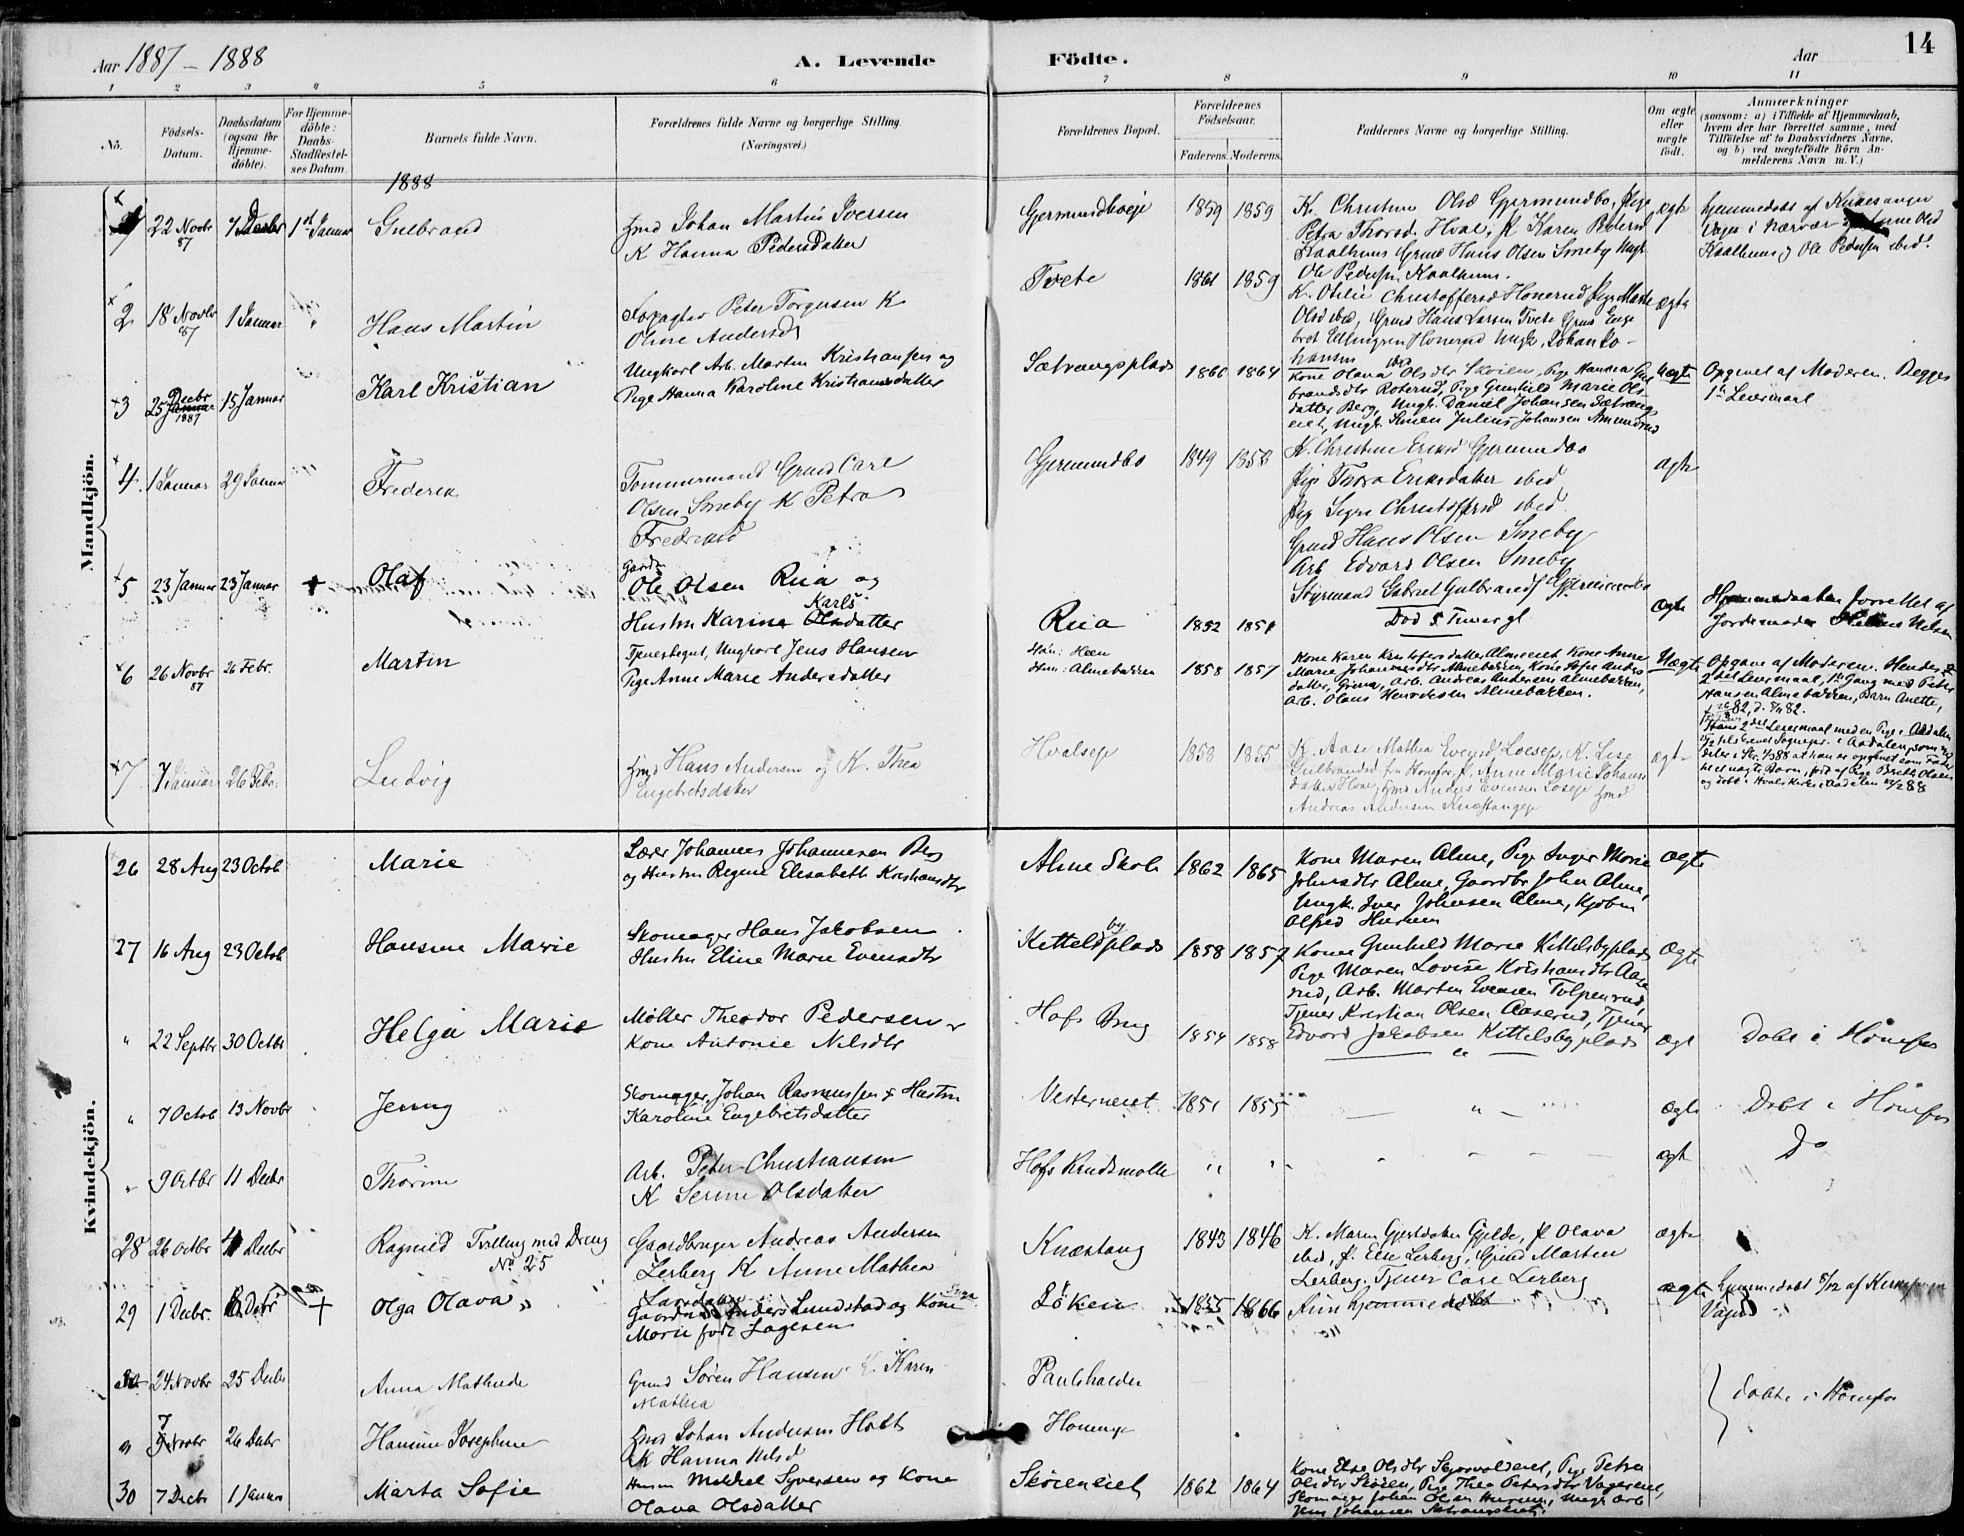 Aar 1887 - 1888
A. Levende
Födte.
Aar
14
1 2 3 4 5 6 7 8 9 10 11
No.
Födsels-
Datum.
Daabsdatum
(ogsaa for
Hjemme-
döbte).
For Hjemme-
döbte:
Daabs-
Stadfæstel-
ses Datum.
Barnets fulde Navn.
Forældrenes fulde Navne og borgerlige Stilling.
(Næringsvei.)
Forældrenes Bopæl.
Forældrenes
Födselsaar.
Faderens. Moderens.
Faddernes Navne og borgerlige Stilling.
Om ægte
eller
uægte
født.
Anmærkninger
(saasom: a) i Tilfælde af Hjemmedaab,
hvem der har forrettet samme, med
Tilföielse af to Daabsvidners Navne,
og b) ved uægtefödte Börn An-
melderens Navn m. V.)
1888
Mandkjön.
22 Novbr 87
7 Decbr
1st Januar
Gulbrand
Johan Martin Iversen
K Hanna Pedersdatter
Gjermundboeje
1859 1859
K. Christine Olsd Gjermundbo, Pige
Petra Thorsd. Hval, P Karen Pedersd
Kaalhuus Grmd Hans Olsen Smeby Ungk
Ole Pedersen Kaalhuus.
ægte
hjemmedøbt af Kirkesanger
Vager i Nærvær
Kaalhuus og Ole Pedersen ibid.
2
18 Novbr 87
1 Januar
Hans Martin
Forpagter Peter Torgersen K
Oline Andersd
Tvete
1861 1859
K. Otilie Christoffersd Honerud Pige Marte
Olsd ibid, Grmd Hans Larsen Tvete Grmd Enge
bret Ellingsen Honerud Ungk. Johan Jo-
hansen ibid
ægte
3
25 Decbr 1887
15 Januar
Karl Kristian
Ungkarl Arb. Martin Kristiansen og
Pige Hanna Karoline Kristiansdatter
Sætrangsplads
1866 1864
Kone Olava Olsdtr Skoien, Pige Hanna Gul
brandsdtr Roterud, Pige Gunhild Marie Ols
datter Berg, Ungk. Daniel Johansen Sætrangs
eiet, Ungk. Simen Julius Johansen Amundrud
Uægte
Opgivet af Moderen. Begges
1ste Leiermaal
4
1 Januar
29 Januar
Frederik
Tømmermand Grmd Carl
Olsen Smeby K Petra
Fredriksd
Gjermundbo
1849 1858
K. Christine Eriksd Gjermundbo
Pige Thora Eriksdatter ibid
Pige Signe Christoffersd ibid.
Grmd Hans Olsen Smeby
Arb Edvard Olsen Smeby
Styrmand Gabriel Gulbrands Gjermundbo
ægte
5
23 Januar
23 Januar
+
Olaf
Gaardbr
Ole Olsen Ruа og
Hustru Karine Karlsdatter
Rua
1852 1851
Død 5 Timer gl
Ægte
Hjemmedaaben forrettet af
Jordemoder Helene Nilsen
6
26 Novbr 87
26 Febr.
Martin
Tjenestegut, Ungkarl Jens Hansen
Pige Anne Marie Andersdatter
Han: Heen
Hun: Almebakken
1858 1857
Kone Karen Kristofersdatter Almeeiet Kone Anne
Marie Johannesdtr Almebakken, Kone Sofie Anders
datter, Grina, Arb. Andreas Andersen Almebakken,
Arb. Olaus Henriksen Almebakken.
Uægte
Opgave af Moderen. Hendes
2det Leiermaal, 1te Gang med Peter
Hansen Almebakken, Barn Anette,
Hans 2det Leiermaal med en Pige i Aadalen
7
7 Januar
26 Febr.
Ludvig
Hans Andersen og K. Thea
Engebretsdatter
Hvalseje
1858 1855
K. Aase Mathea Evensd Loeseje, K. Lise
Gulbrandsd fra Honefos, P. Anne Marie Johans
datter Hval, Grmd Anders Evensen Loseje Grmd
Andreas Andersen Knæstangeje
ægte
og døbt i Hvals Kirke i Aadalen
Kvindekjön.
26
28 Aug
23 Octob
Marie
Lærer Johannes Johannesen Berg
og Hustru Regine Elisabeth Kristiansdtr
Alme Skole
1862 1865
Kone Maren Alme, Pige Inger Marie
Johnsdtr Alme, Gaardbr John Alme,
Ungk. Iver Johnsen Alme, Kjøbm
Alfred Hurum
Ægte
27
16 Aug
23 Octob
Hansine Marie
Skomager Hans Jakobsen
Hustru Eline Marie Evensdtr
Kittelsbyplads
1858 1857
Kone Gunhild Marie Kittelsbyplads
Pige Maren Lovise Kristiansdtr Aase
rud, Arb. Martin Evensen Tolpenrud,
Tjener Kristian Olsen Aaserud, Tjener
Edvard Jakobsen Kittelsbyplads
Ægte
"
22 Septbr
30 Octbr
Helga Marie
Møller Theodor Pedersen
Kone Antonie Nilsdtr
Hofs Brug
1854 1858
"
ægte
Dobt i Hönefos
"
7 Octob
13 Novbr
Jenny
Skomager Johan Rasmussen & Hustru
Karoline Engebretsdatter
Vesterneiet
1851 1855
"
ægte
Dobt i Hönefos
"
9 Octbr
11 Decbr
Thorine
Arb. Peter Christiansen
K Serine Olsdatter
Hofs Krudsmølle
" "
ægte
Do
28
26 Octbr
4 Decbr
Ragnild Tvilling med Dreng
No 25
Gaardbruger Andreas Andersen
Lerberg K Anne Mathea
Larsdatter
Knæstang
1843 1846
K. Maren Gjertsdatter Gjelde, P Olava
ibid, P. Else Lerberg, Grmd Marten
Lerberg. Tjener Carl Lerberg
ægte
29
1 Decbr.
+
Olga Olava
Anders Lundstad og Kone
Marie født Fagesen
Löken
1855 1866
hjemmedøbt
ægte
hjemmedøbt af Kirkesanger
Vager
24 Novbr
25 Decbr
Anna Mathilde
Grmd Søren Hansen K. Karen
Mathea
Paulshalden
dobte i Hönefos
"
7 Novbr
26 Decbr
Hanna Josephine
Johan Andersen Holt
K Hanna Nilsd
30
7 Decbr
1 Januar
Marta Sofie
Husm Mikkel Syversen og Kone
Olava Olsdatter
Skoieneiet
1862 1864
Kone Else Olsdtr Skjorvoldeiet, Pige Petra
Olsdtr Skoien, Pige Thea Petersdtr Vagereiet,
Skomager Johan Olsen Hurum, Ungk. Arb.
Jens Johansen Sætrangseiet.